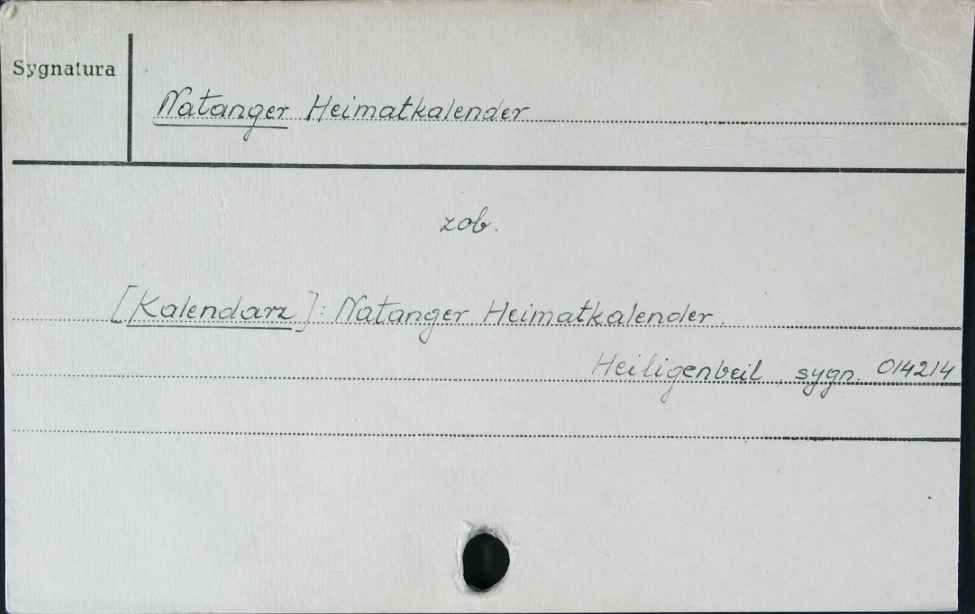 Sygnatura
Natanger Heimatkalender
zob.
[Kalendarz]: Natanger Heimatkalender.
Heiligenbeil, sygn. 014214